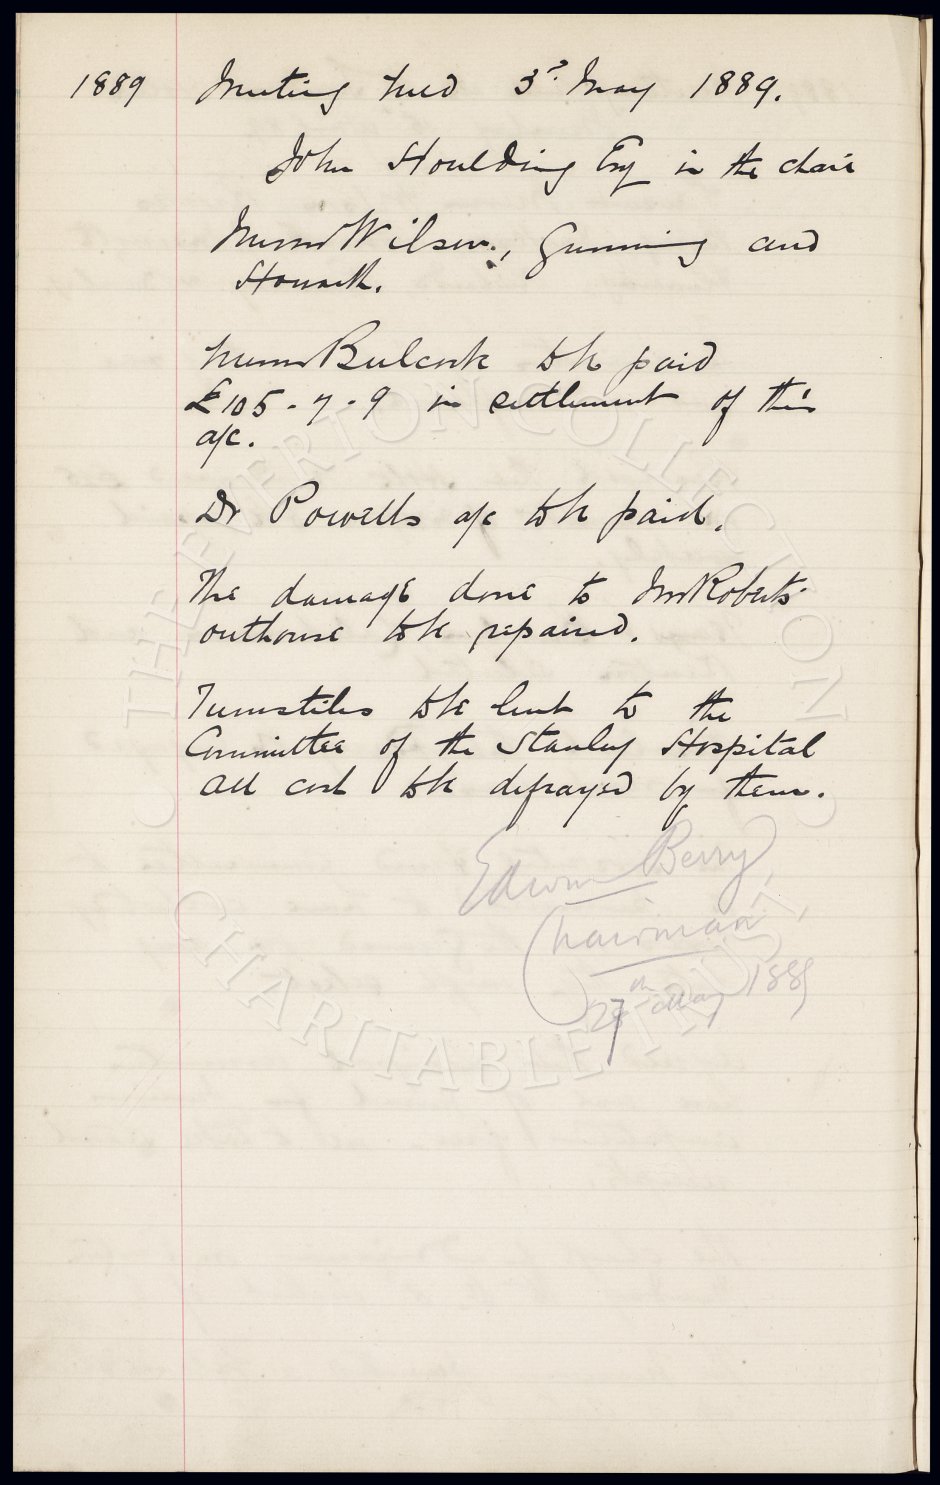 1889 Meeting held 3rd May 1889.
John Houlding Esq in the chair
Messrs Wilson, Gunning and
Howarth.
Messrs Bulcock to be paid
£105-7-9 in settlement of their
a/c.
Dr Powells a/c to be paid.
The damage done to Mrs Roberts'
outhouse to be repaired.
Turnstiles to be lent to the
Committee of the Stanley Hospital
all cost to be defrayed by them.
Edwin Berry
Chairman
27th May 1889
© THE EVERTON COLLECTION CHARITABLE TRUST